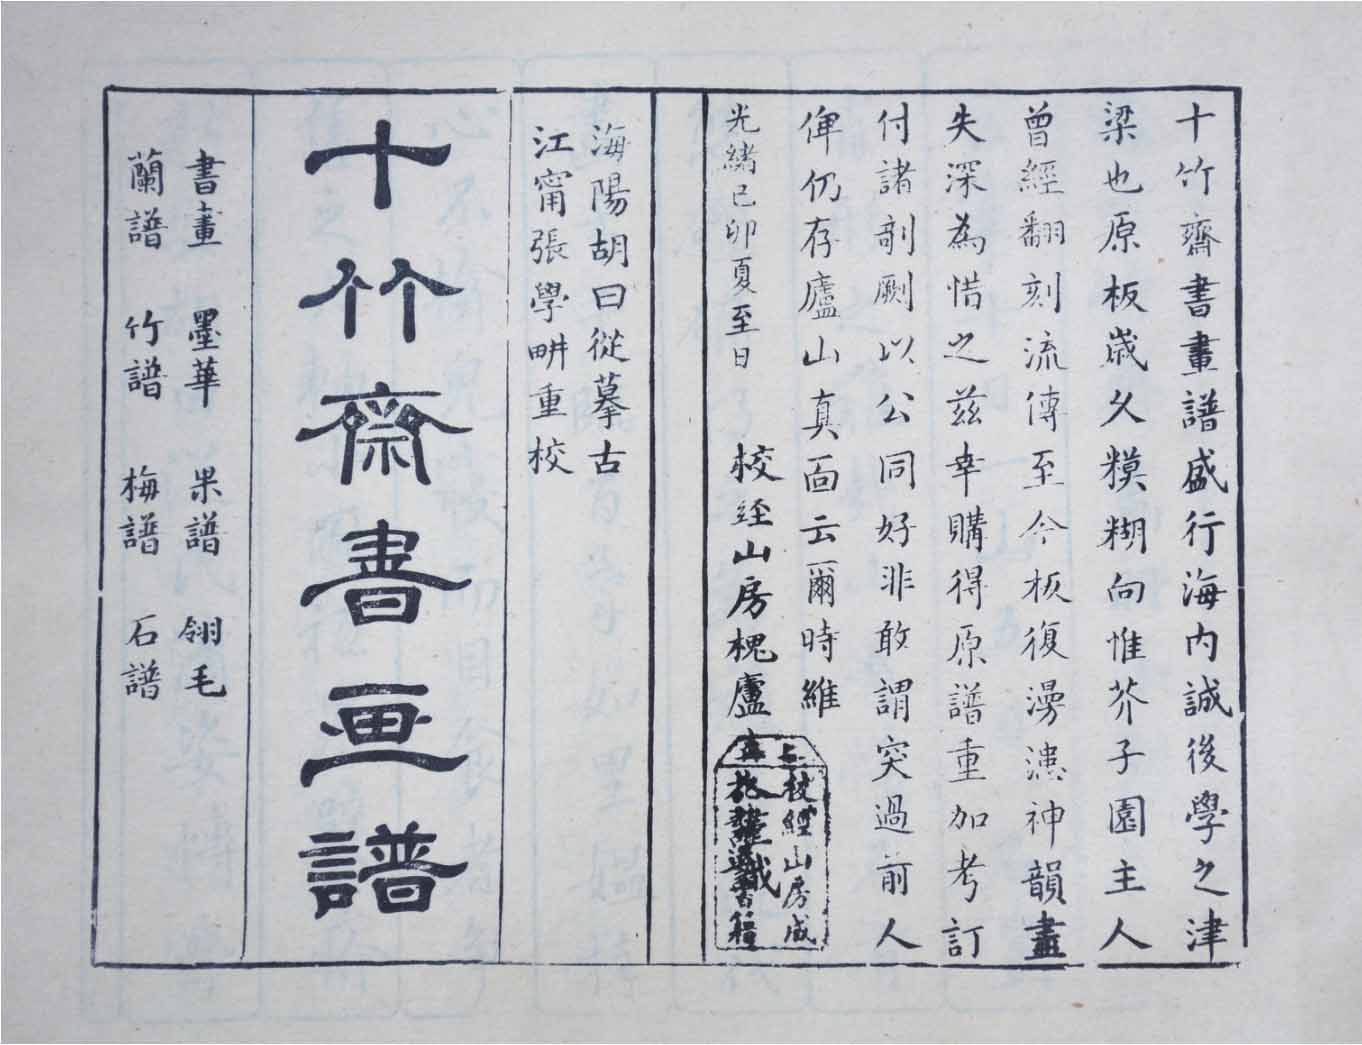 十竹齋書畫譜盛行海内誠後學之津
梁也原板歲久糢糊向惟芥子園主人
曾經翻刻流傳至今板復漫漶神韻盡
失深為惜之兹幸購得原譜重加考訂
付諸剞劂以公同好非敢謂突過前人
俾仍存廬山真面云爾時維
光緒己卯夏至日 校経山房槐廬
校經山房成
書籍
海陽胡曰從摹古
江甯張學畊重校
十竹齋書画譜
書畫 墨華 果譜 翎毛
蘭譜 竹譜 梅譜 石譜